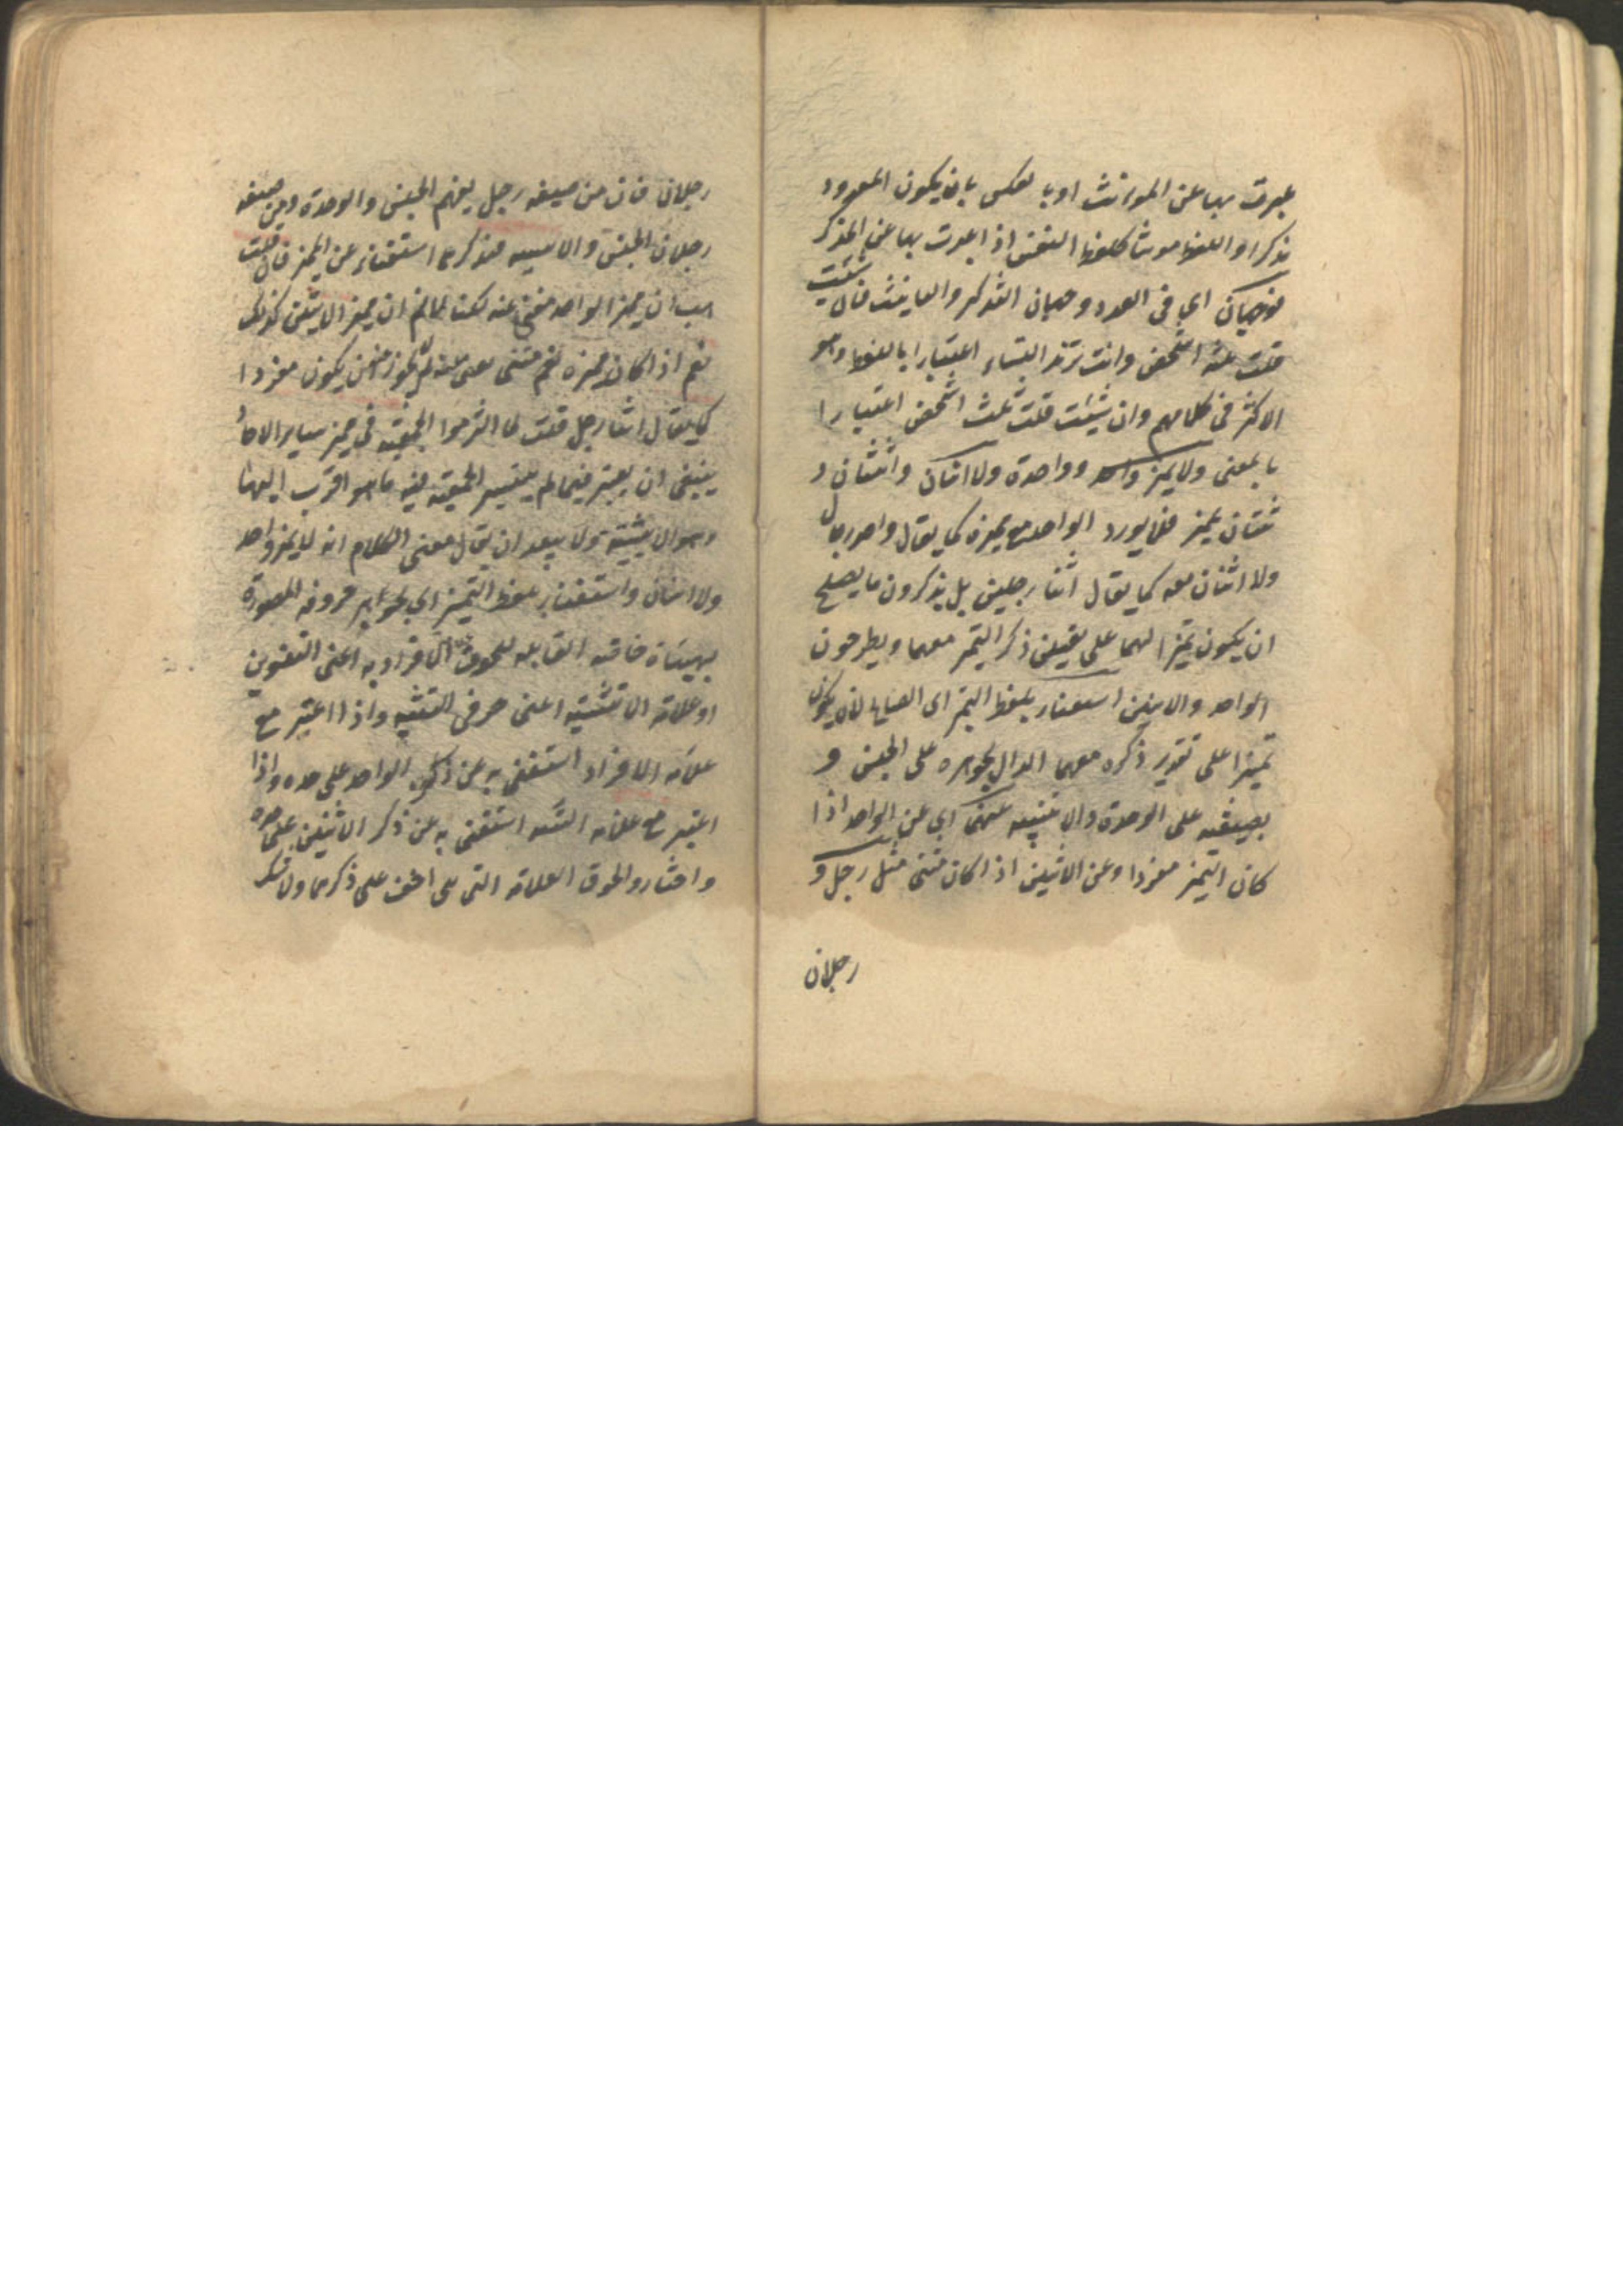 عبرت بها عن المؤنث او بالعكس بان يكون المعدود
مذكرا واللفظ مؤنثا كلفظ النفس اذا عبرت بها عن المذكر
فوجهان اي فى العدد وجهان التذكير والتانيث فان شئت
قلت ثلثه اشخص وانت تريد النساء اعتبارا باللفظ وهو
الاكثر فى كلامهم وان شئت قلت ثلث اشخص اعتبارا
بالمعنى ولا يميز واحد وواحدة ولا اثنان واثنتان و
ثنتان بمميز فلا يورد الواحد مع مميزه كما يقال واحد رجل
ولا اثنان معه كما يقال اثنا رجلين بل يذكرون ما يصلح
ان يكون تميزا لهما على تقدير ذكر التميز معهما ويطرحون
الواحد والاثنين استغناء بلفظ التميز اى الصالح لان يكون
تميزا على تقدير ذكره معهما الدال بجوهره على الجنس و
بصيغته على الوحدة والاثنينيه عنهما اي عن الواحد اذا
كان التميز مفردا وعن الاثنين اذا كان مثنى مثل رجل و
رجلان
رجلان فان من صيغه رجل يفهم الجنس والوحدة ومن صيغه
رجلان الجنس والاثنينيه فذكرهما استغناء عن المميز فان قلت
هب ان مميز الواحد مغنى عنه لكنا لا نم ان مميز الاثنين كذلك
نعم اذا كان مميزه نعم مثنى مغنى عنه لم لا يجوز ان يكون مفردا
كما يقال اثنا رجل قلت لما التزموا الجمعية فى مميز ساير الاحاد
ينبغى ان يعتبر فيما لم يتيسر الجمعية فيه ما هو اقرب اليها
وهو الاثنينية ولا يبعد ان يقال معنى الكلام انه لا يميز واحد
ولا اثنان استغناء بلفظ التميز اي بجوهر حروفه المصورة
بهيئات خاصة القابله للحوق علامة الافراد به اعنى التنوين
او علامة التثنية اعنى حرفى التثنيه واذا اعتبر مع
علامة الافراد استغنى به عن ذكر الواحد على حده واذا
اعتبر مع علامة التثنيه استغنى به عن ذكر الاثنين على حده
واختاروا لحوق العلامة التى هى اخف على ذكرهما ولا شك